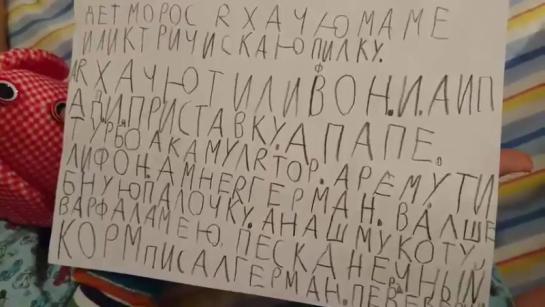 ДЕТ МОРОС Я ХАЧЮ МАМЕ
ИЛИКТРИЧИСКАЮ ПИЛКУ.
Я ХАЧЮ ТИЛИВОН. И. АИП
АДИ. ПРИСТАВКУ. А ПАПЕ.
ТУРБО АКАМУЛЯТОР. А РЕМУ ТИ
ЛИФОН. А МНЕ ЯГЕРМАН. ВАЛШЕ
БНУЮ ПАЛОЧКУ. А НАШМУ КОТУ
ВАРФАЛАМЕЮ. ПЕСКАНЕЧНЫЙ
КОРМ ПИСАЛ ГЕРМАН.